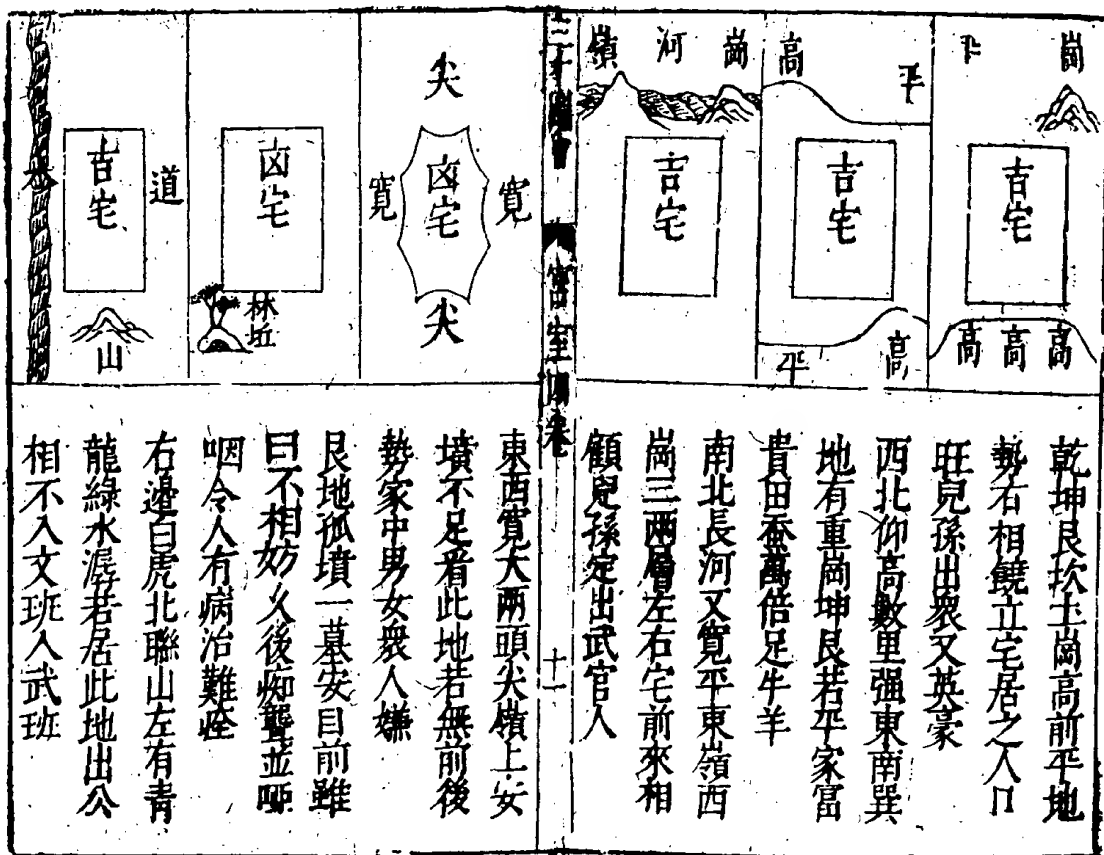 崗
平
吉宅
高 高 高
高
平
吉宅
高
平
崗
河
嶺
吉宅
乾坤艮坎土崗高前平地
勢右相饒立宅居之人口
旺兒孫出衆又英豪
西北仰高數里强東南巽
地有重崗坤艮若平家富
貴田蚕萬倍足牛羊
南北長河又寬平東嶺西
崗三兩層左右宅前來相
顧兒孫定出武官人
三才圖會
宮室四卷
十一
尖
寛
凶宅
寛
尖
凶宅
林坵
道
吉宅
水
山
東西寬大兩頭尖嶺上安
墳不足看此地若無前後
勢家中男女衆人嫌
艮地孤墳一墓安目前雖
曰不相妨久後痴聾並啞
咽令人有病治難痊
右邊白虎北聯山左有青
龍綠水潺若居此地出公
相不入文班入武班